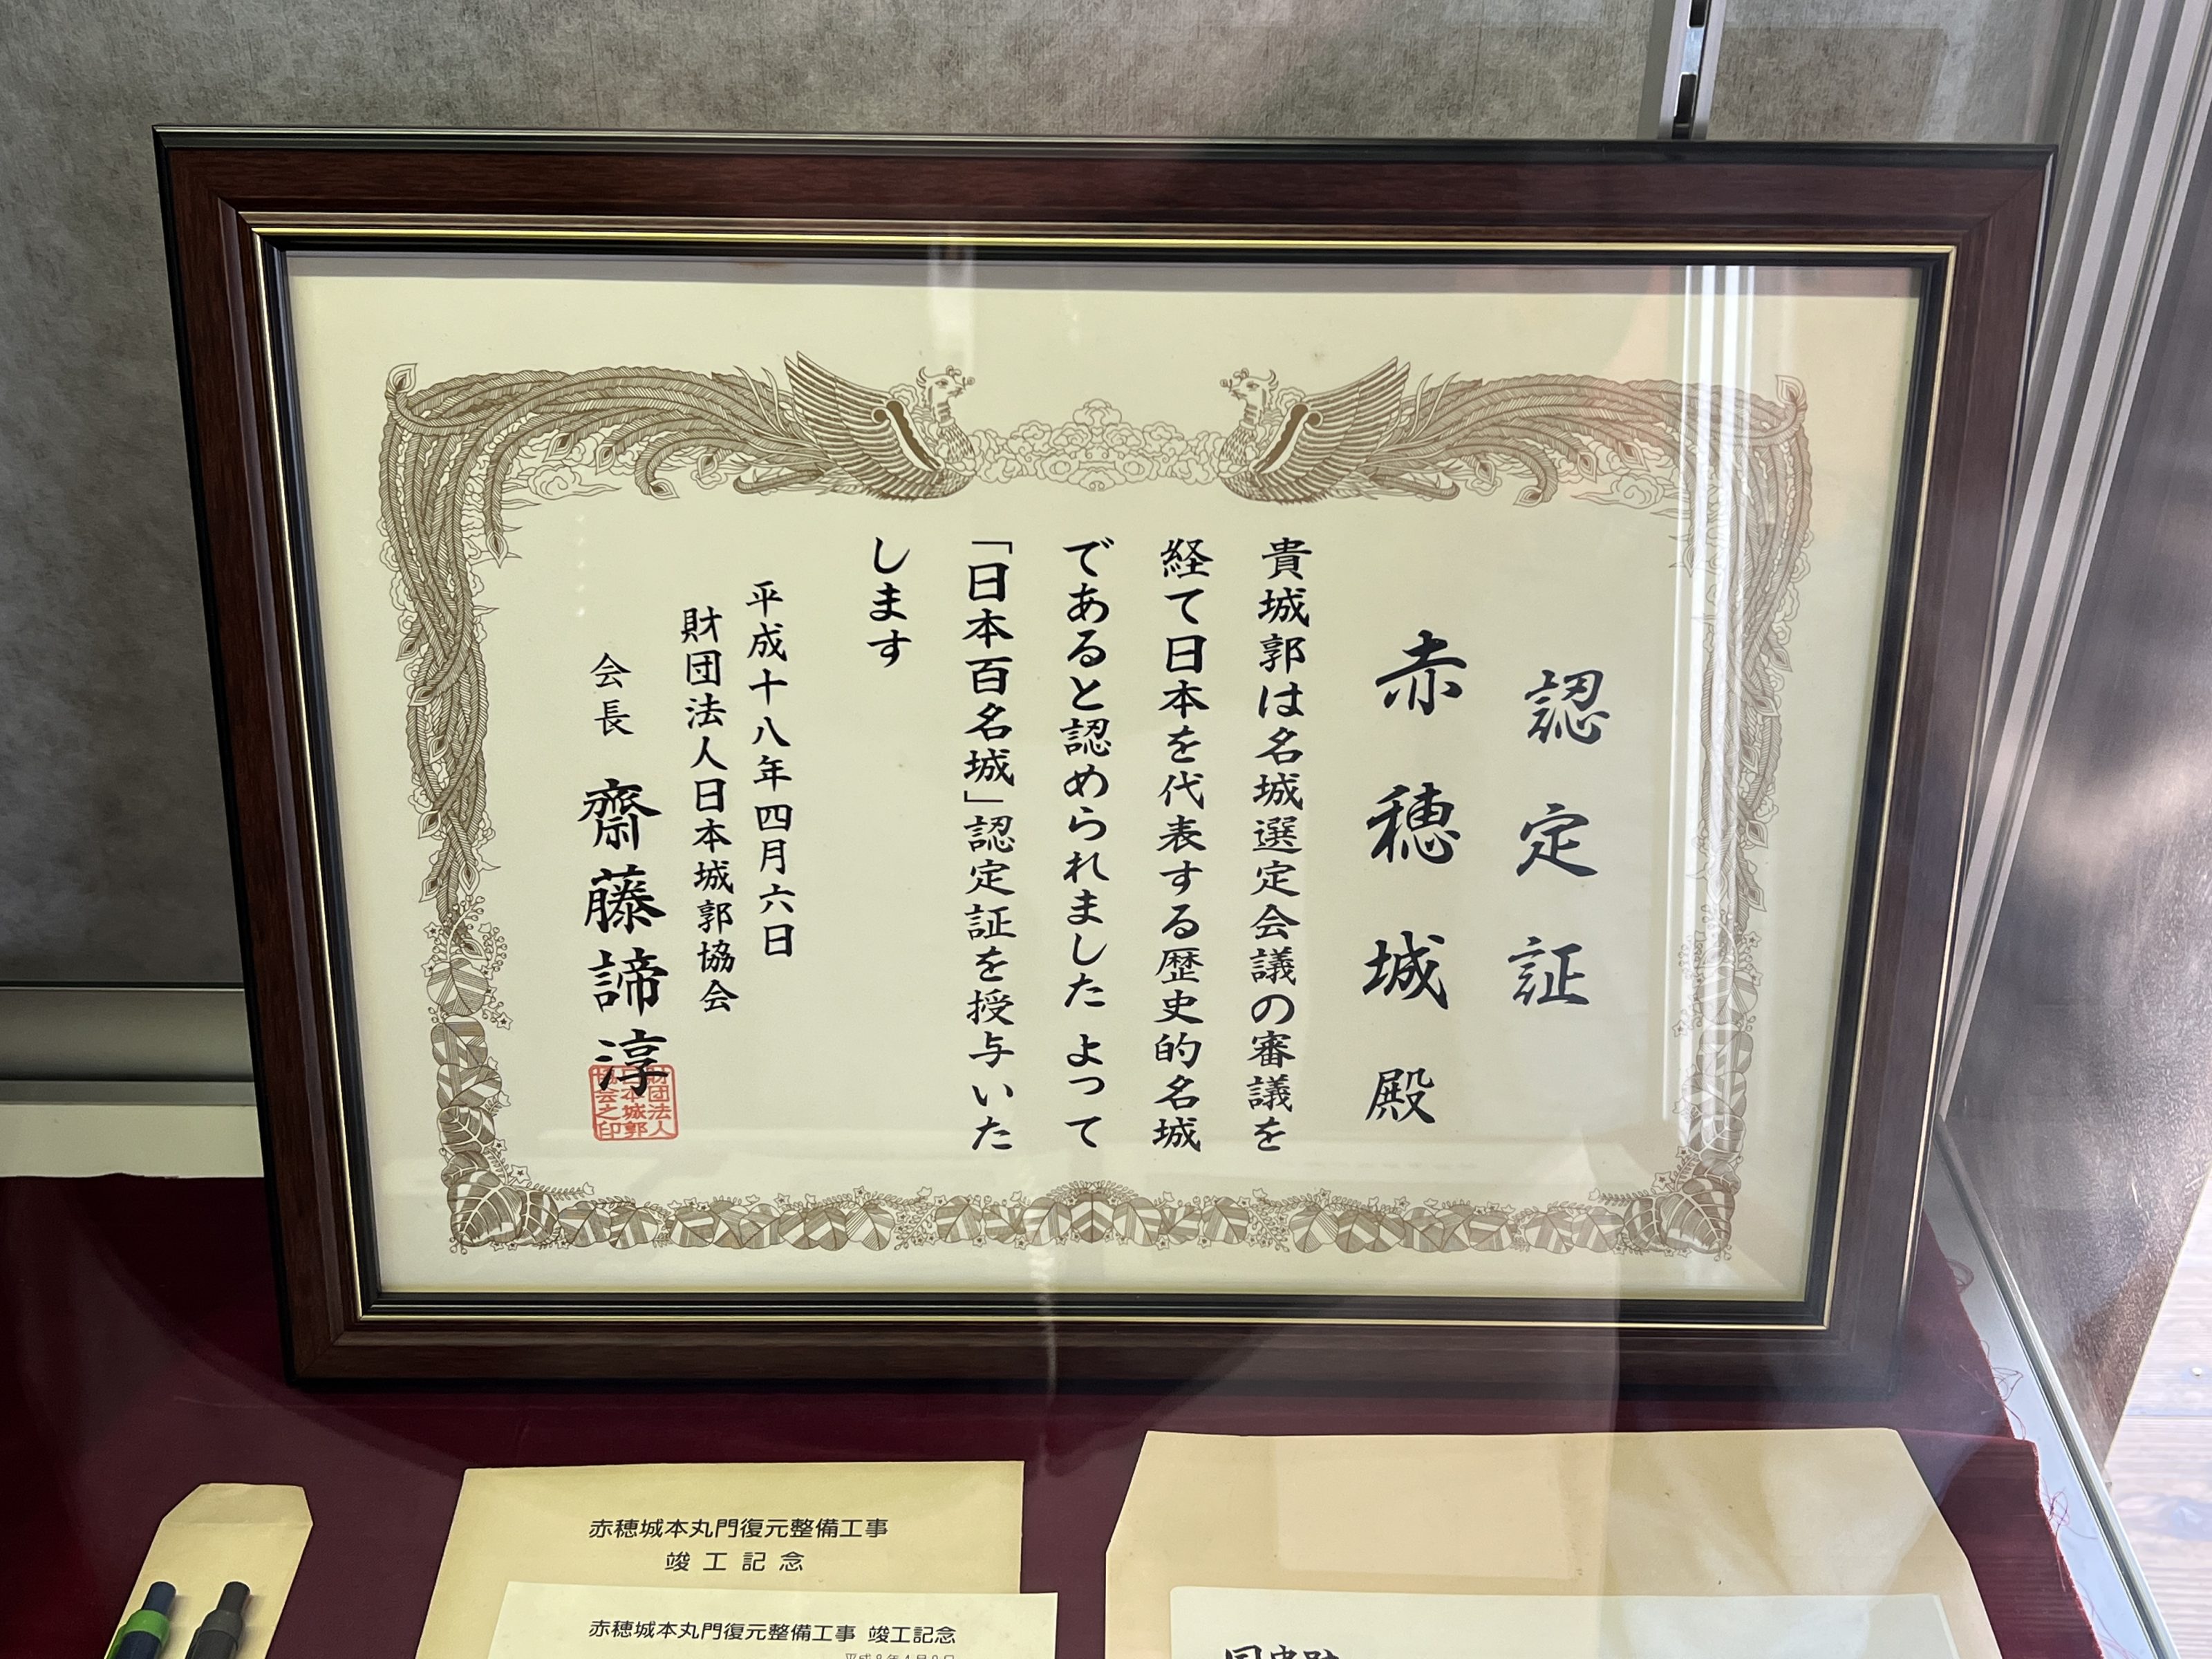 認定証
赤穂城殿
貴城郭は名城選定会議の審議を
経て日本を代表する歴史的名城
であると認められました よって
「日本百名城」認定証を授与いた
します
平成十八年四月六日
財団法人日本城郭協会
会長 齋藤諦淳
財団法人
日本城郭
協会之印
赤穂城本丸門復元整備工事
竣工記念
赤穂城本丸門復元整備工事 竣工記念